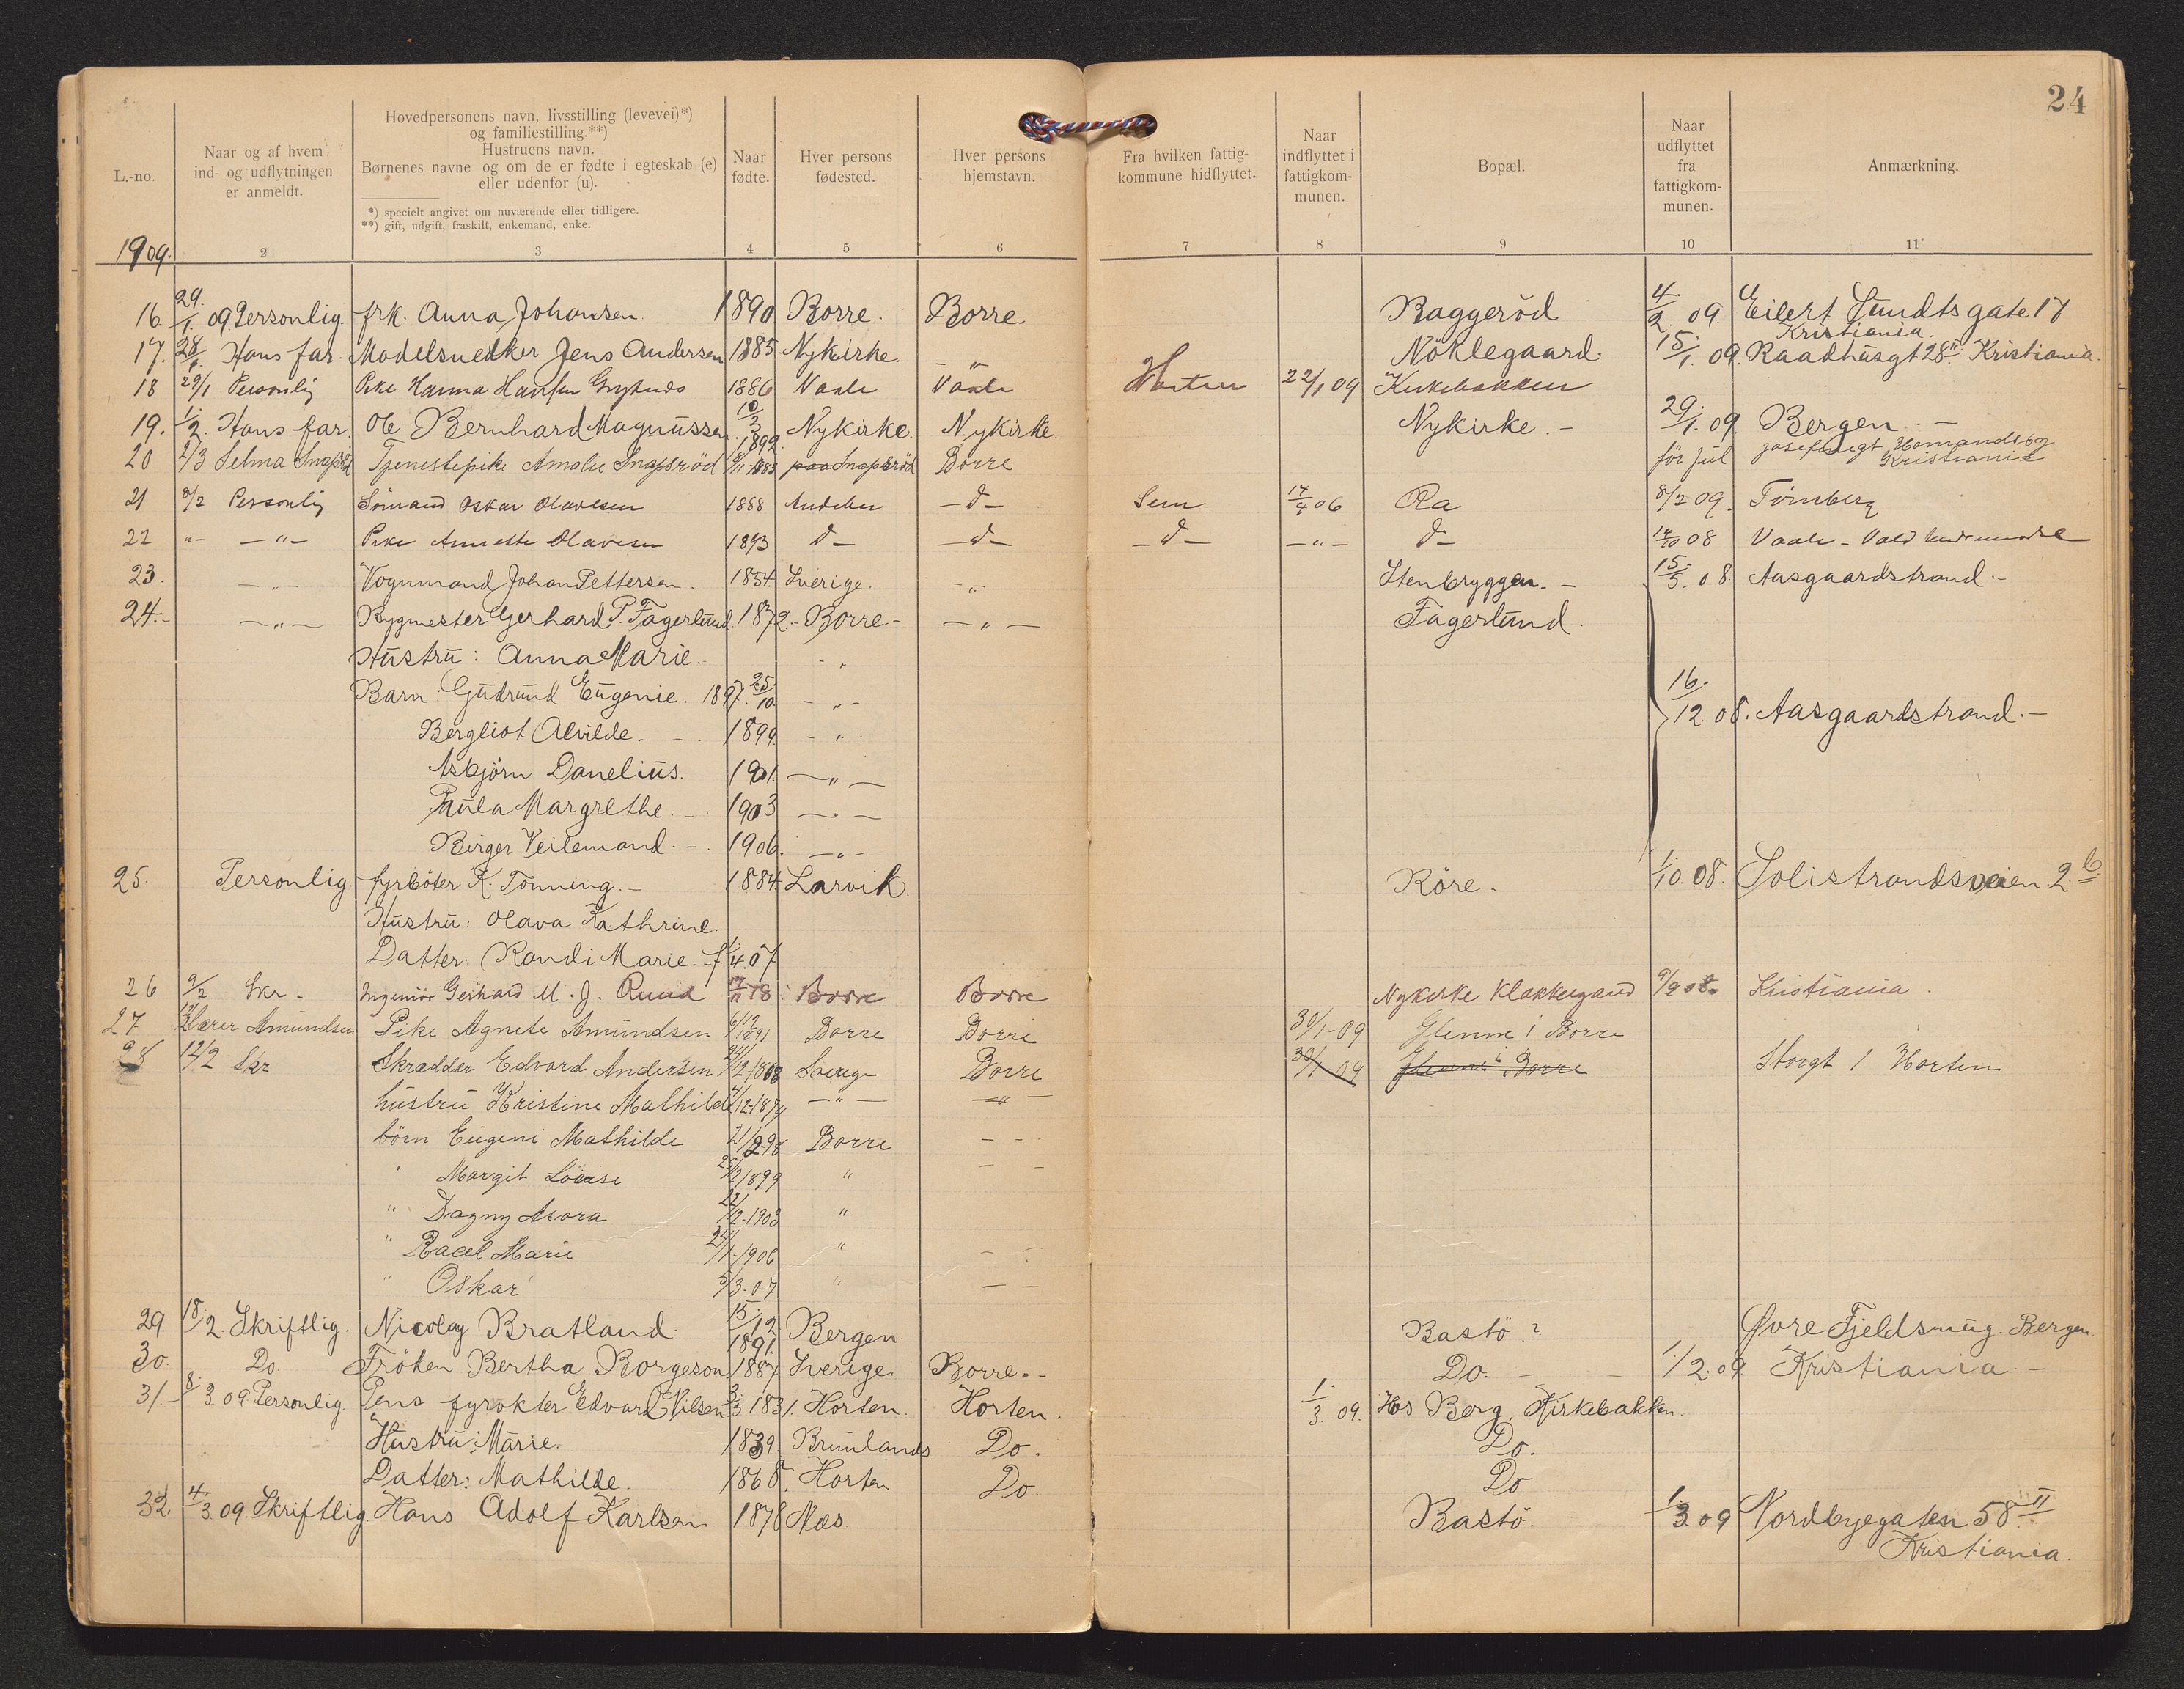 24
L.-no.
Naar og af hvem ind- og udflytningen er anmeldt.
Hovedpersonens navn, livsstilling (levevei)*) og familiestilling.**)
Hustruens navn.
Børnenes navne og om de er fødte i egteskab (e) eller udenfor (u).
*) specielt angivet om nuværende eller tidligere.
**) gift, udgift, fraskilt, enkemand, enke.
Naar fødte.
Hver persons fødested.
Hver persons hjemstavn.
Fra hvilken fattigkommune hidflyttet.
Naar indflyttet i fattigkommunen.
Bopæl.
Naar udflyttet fra fattigkommunen.
Anmærkning.
1909. 2 3 4 5 6 7 8 9 10 11
16. 29./1. 09. Personlig. frk. Anna Johansen. 1890 Borre. Borre. Baggeröd 4./2. 09. Eilert Sundts gate 17 Kristiania.
17. 28/1. Hans far. Modelsnedker Jens Andersen 1885. Nykirke. - " - Nöklegaard. 15./1. 09. Raadhusgt 28 II Kristiania.
18 29/1 Personlig Pike Hanna Hansen 1886 Vaale Vaale Horten 22/1 09 Kirkebakken
19. 1./2. Hans far. Ole Bernhard Magnussen. 10/3 1892 Nykirke. Nykirke. Nykirke. - 29./1. 09. Bergen. -
20 2/3 Selma Snapsröd Tjenestepike Amalie Snapsröd 1883 Snapsröd Borre för jul Josefinegt Homandsby Kristiania
21 8/2 Personlig Sömand Oskar Olavesen 1888 Andebu - d - Sem 17/4 06 Ra 8/2 09. Tönsberg
22 " - - " - Pike Annette Olavesen 1893 d - - d - - d - - " - d - 14/10 08 Vaale -
23. - " - Vognmand Johan Pettersen. 1854 Sverige. - " - Stenbryggen. - 15./5. 08. Aasgaardstrand. -
24. - - " - Bygmester Gerhard P. Fagerlund. 1872. - Borre. - - " - Fagerlund.
Hustru: Anna Marie. - "
Barn: Gudrund Eugenie. 1897. 25./10. - " - 16./12. 08. Aasgaardstrand. -
Bergliot Alvilde. - 1899 - "
Asbjörn Danelius. 1901. - " -
Paula Margrethe. - 1903 - " -
Birger Veilemand. - 1906. - " -
25. Personlig. fyrböter K. Tonning. - 1884 Larvik. Röre. 1./10. 08. Solistrandsveien 2 b
Hustru: Olava Kathrine.
Datter: Randi Marie. f. 1./4. 07
26 9/2 Skr. Ingeniör Gerhard M. J. Ruud 78 Borre Borre Nykirke Klokkergaard 9/2 08 Kristiania.
27. Lærer Amundsen Pike Agnete Amundsen 6/12 1891 Borre Borre 30/1-09 Glenne i Borre
28 12/2 Skr Skrædder Edvard Andersen 1868 Sverige Borre 30/1 09 Glenne i Borre Storgt 1 Horten
hustru Kristine Mathilde 12-1874 - " - - " -
börn Eugeni Mathilde 98 Borre - -
" Margit Lovise 1899 " - -
" Dagny Asora 1903 "
" Racel Marie 1906 " - -
" Oskar 5/3-07 " - -
29 18./2. Skriftlig. Nicolay Bratland. 15./12 1891. Bergen. Bastö ? Øvre Fjeldsmug. Bergen.
30. Do. Fröken Bertha Borgeson 1887 Sverige. Borre. - Do. - 1./2. 09. Kristiania. -
31. - 8./3. 09 Personlig. Pens fyrvokter Edvard Nilsen 3/5 1831. Horten. Horten. 1./3. 09. Hos Berg, Kirkebakken.
Hustru: Marie. 1839 Brunlanes Do. Do.
Datter: Mathilde. 1868. Horten Do. Do
32. 4./3. 09. Skriftlig. Hans Adolf Karlsen 1878 Næs. Bastö. 1./3. 09 Nordbyegaten 58 II Kristiania.